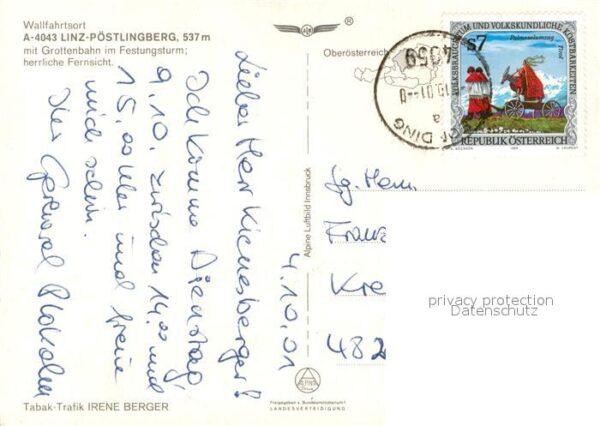 Wallfahrtsort
A-4043 LINZ-PÖSTLINGBERG, 537 m
mit Grottenbahn im Festungsturm;
herrliche Fernsicht.
Oberösterreich
4.10.01
Lieber Herr Kienesberger!
Ich komme Dienstag
9.10. zwischen 14.00 und
15.00 Uhr und freue
mich schon.
Ihr Gerhard
Alpine Luftbild Innsbruck
ALPINE
Freigegeben v. Bundesministerium f.
LANDESVERTEIDIGUNG
Tabak-Trafik IRENE BERGER
4059
.10.01-8
a
DING
VOLKSBRAUCHTUM UND VOLKSKUNDLICHE KOSTBARKEITEN
S7
Palmeselumzug
Tirol
REPUBLIK ÖSTERREICH
Sg. Herrn
Franz
Kre
482
privacy protection
Datenschutz